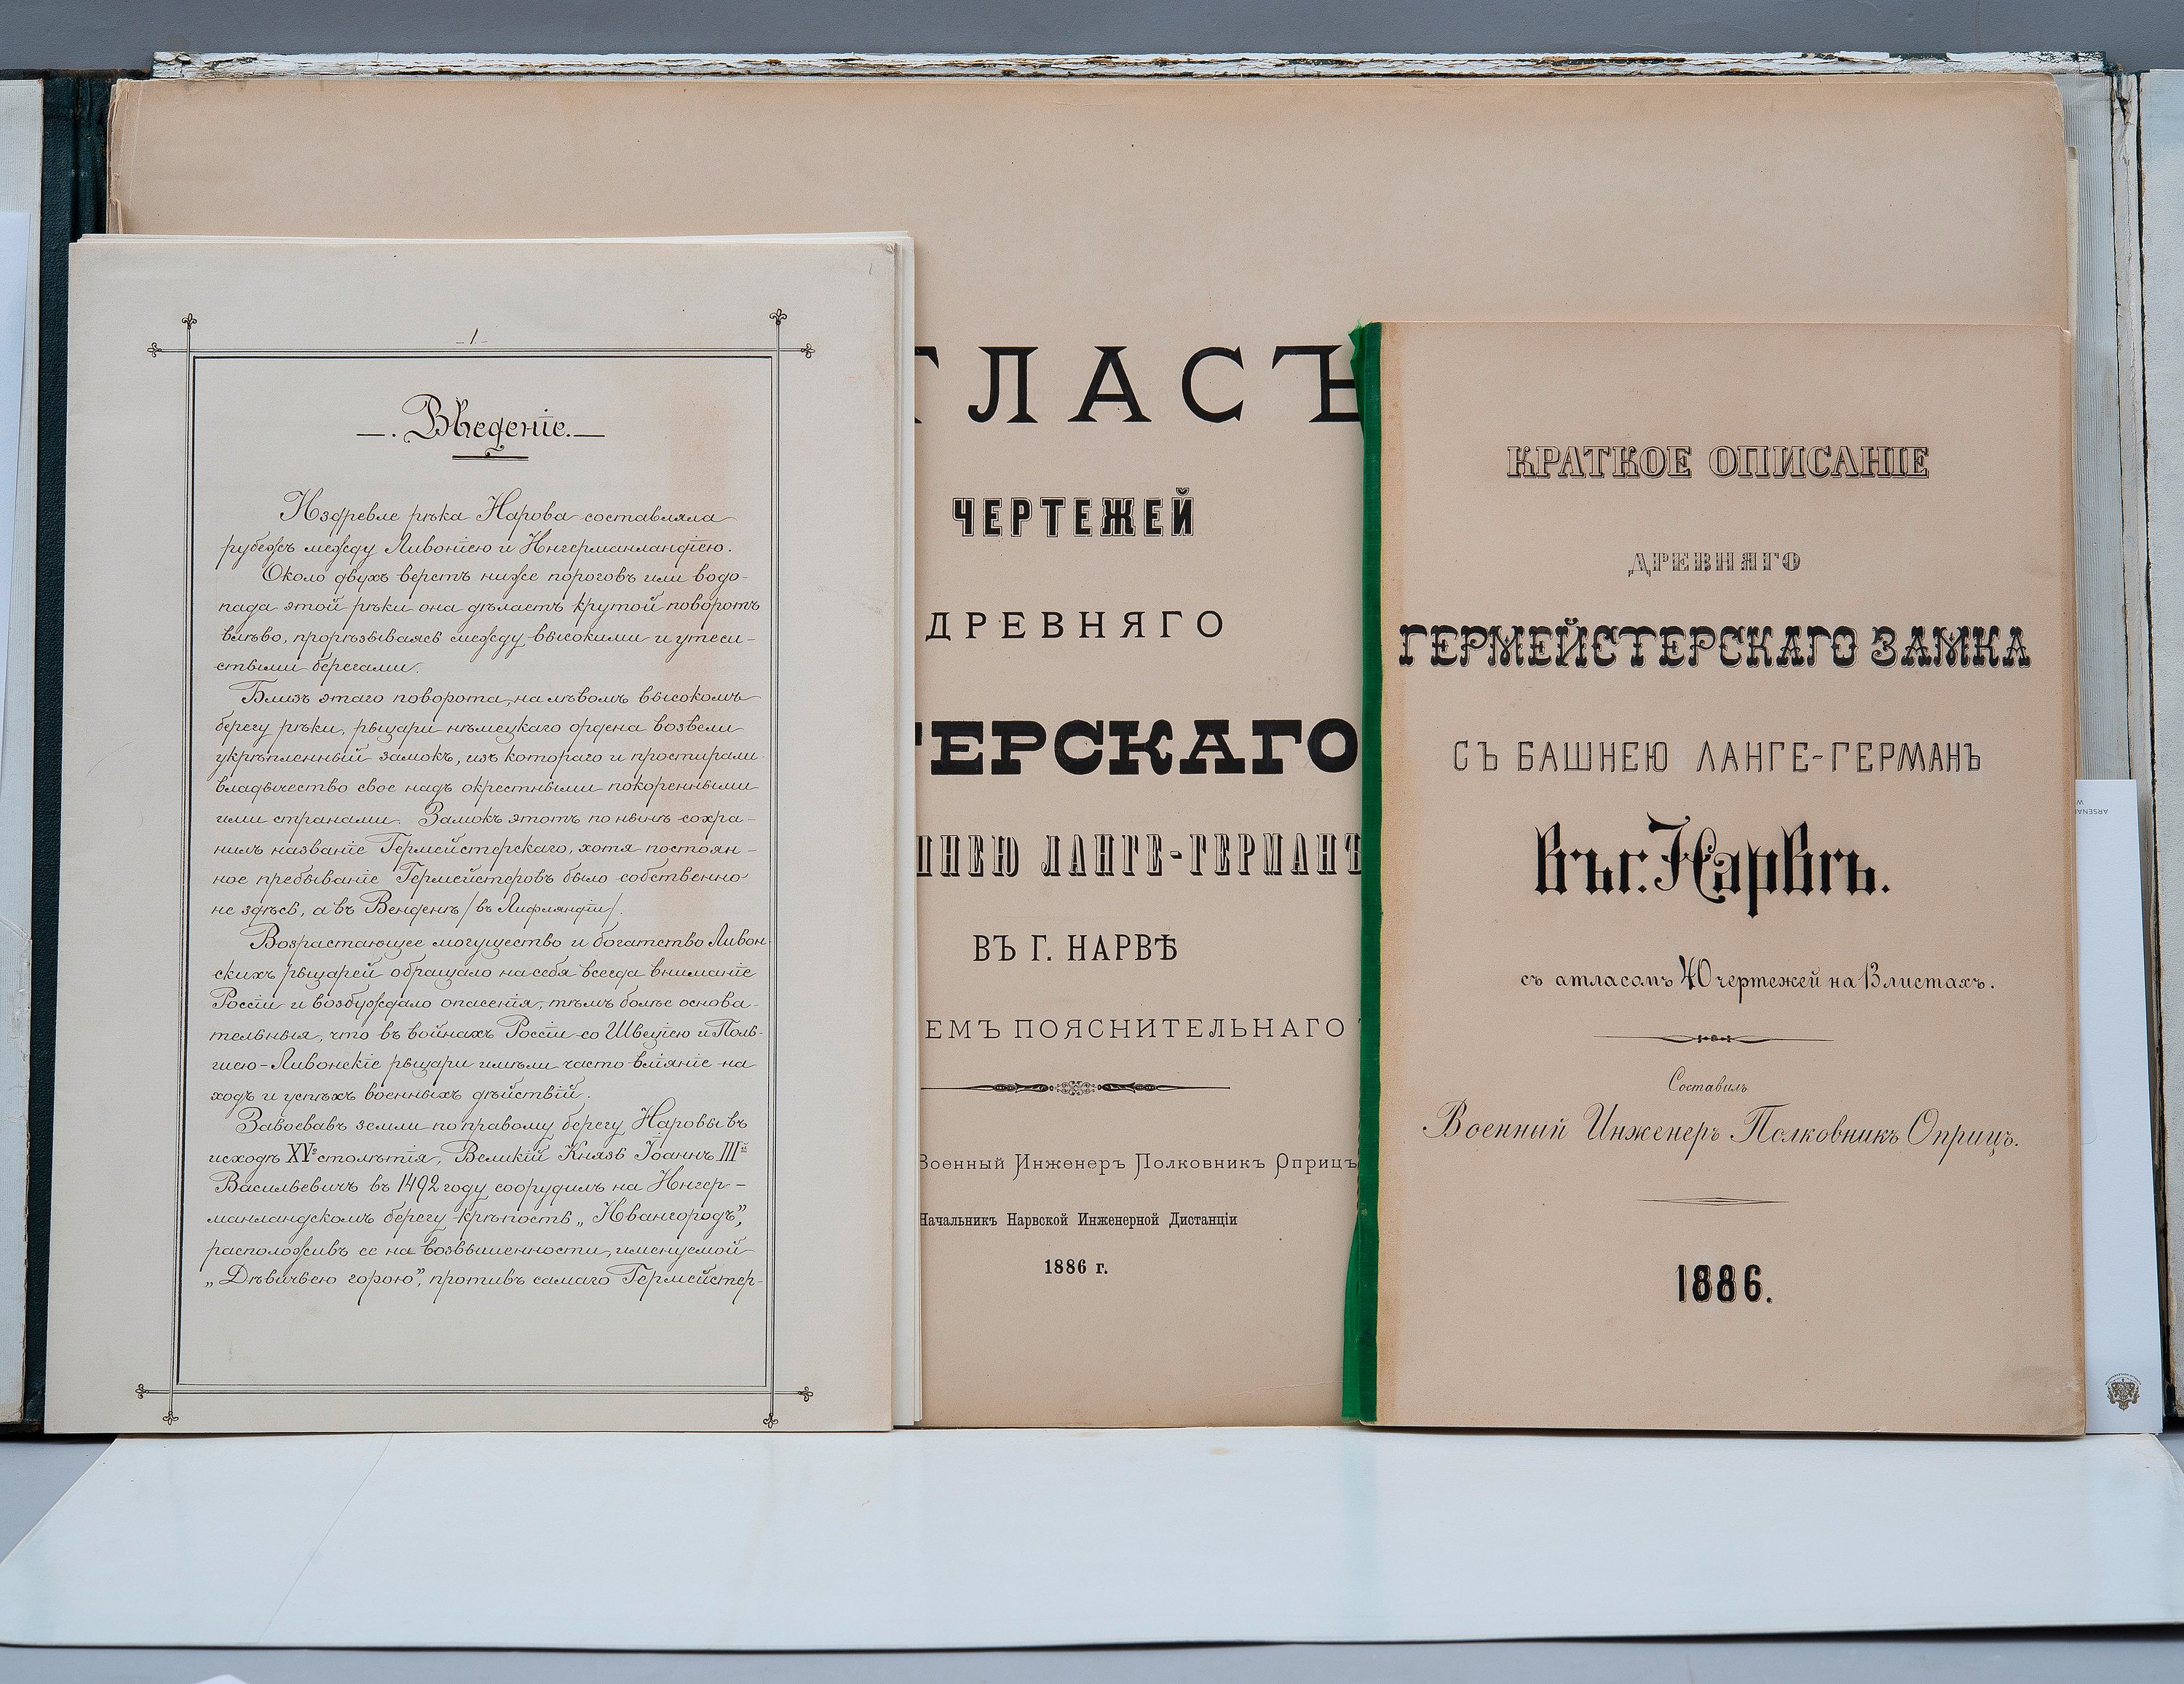 1
- 1 -
Введеніе.
Издревле рѣка Нарова составляла
рубежъ между Ливоніею и Ингерманландіею.
Около двухъ верстъ ниже пороговъ или водо-
пада этой рѣки она дѣлаетъ крутой поворотъ
влѣво, прорѣзываясь между высокими и утеси-
стыми берегами.
Близъ этаго поворота, на лѣвомъ высокомъ
берегу рѣки, рыцари нѣмецкаго ордена возвели
укрѣпленный замокъ, изъ котораго и простирали
владычество свое надъ окрестными покоренными
ими странами. Замокъ этотъ по нынѣ сохра-
нилъ названіе Гермейстерскаго, хотя постоян-
ное пребываніе Гермейстеровъ было собственно
не здѣсь, а въ Венденѣ /въ Лифляндіи/.
Возрастающее могущество и богатство Ливон-
скихъ рыцарей обращало на себя всегда вниманіе
Россіи и возбуждало опасенія, тѣмъ болѣе основа-
тельныя, что въ войнахъ Россіи со Швеціею и Поль-
шею - Ливонскіе рыцари имѣли часто вліяніе на
ходъ и успѣхъ военныхъ дѣйствій.
Завоевавъ земли по правому берегу Наровы въ
исходѣ XVго столѣтія, Великій Князь Іоаннъ IIIй
Васильевичъ въ 1492 году соорудилъ на Ингер-
манландскомъ берегу крѣпость „Ивангородъ”,
расположивъ ее на возвышенности, именуемой
„Дѣвичьею горою”, противъ самаго Гермейстер-
ТЛАСЪ
ЧЕРТЕЖЕЙ
ДРЕВНЯГО
ТЕРСКАГО
ШНЕЮ ЛАНГЕ-ГЕРМАНЪ
ВЪ Г. НАРВѢ
ЕМЪ ПОЯСНИТЕЛЬНАГО
Военный Инженеръ Полковникъ Оприцъ
Начальникъ Нарвской Инженерной Дистанціи
1886 г.
КРАТКОЕ ОПИСАНІЕ
ДРЕВНЯГО
ГЕРМЕЙСТЕРСКАГО ЗАМКА
СЪ БАШНЕЮ ЛАНГЕ-ГЕРМАНЪ
въ г. Нарвѣ.
съ атласомъ 40 чертежей на 13 листахъ.
Составилъ
Военный Инженеръ Полковникъ Оприцъ.
1886.